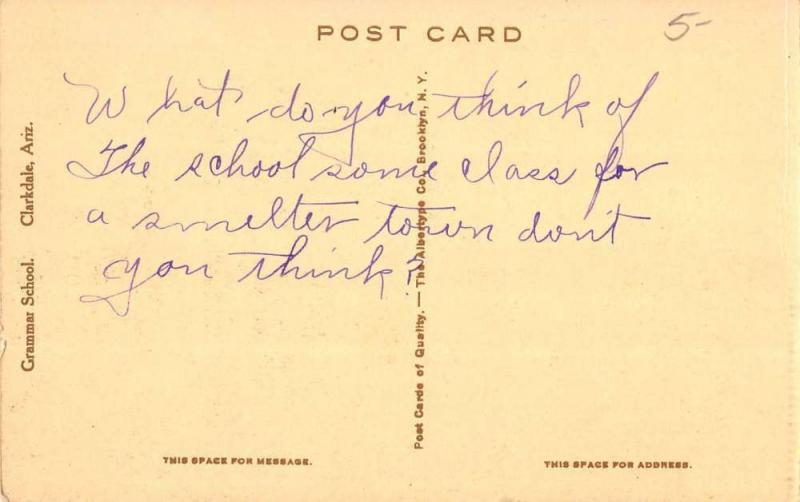 POST CARD
5-
What do you think of
The school some class for
a smelter town don't
you think?
Grammar School. Clarkdale, Ariz.
Post Cards of Quality. — The Albertype Co., Brooklyn, N. Y.
THIS SPACE FOR MESSAGE.
THIS SPACE FOR ADDRESS.